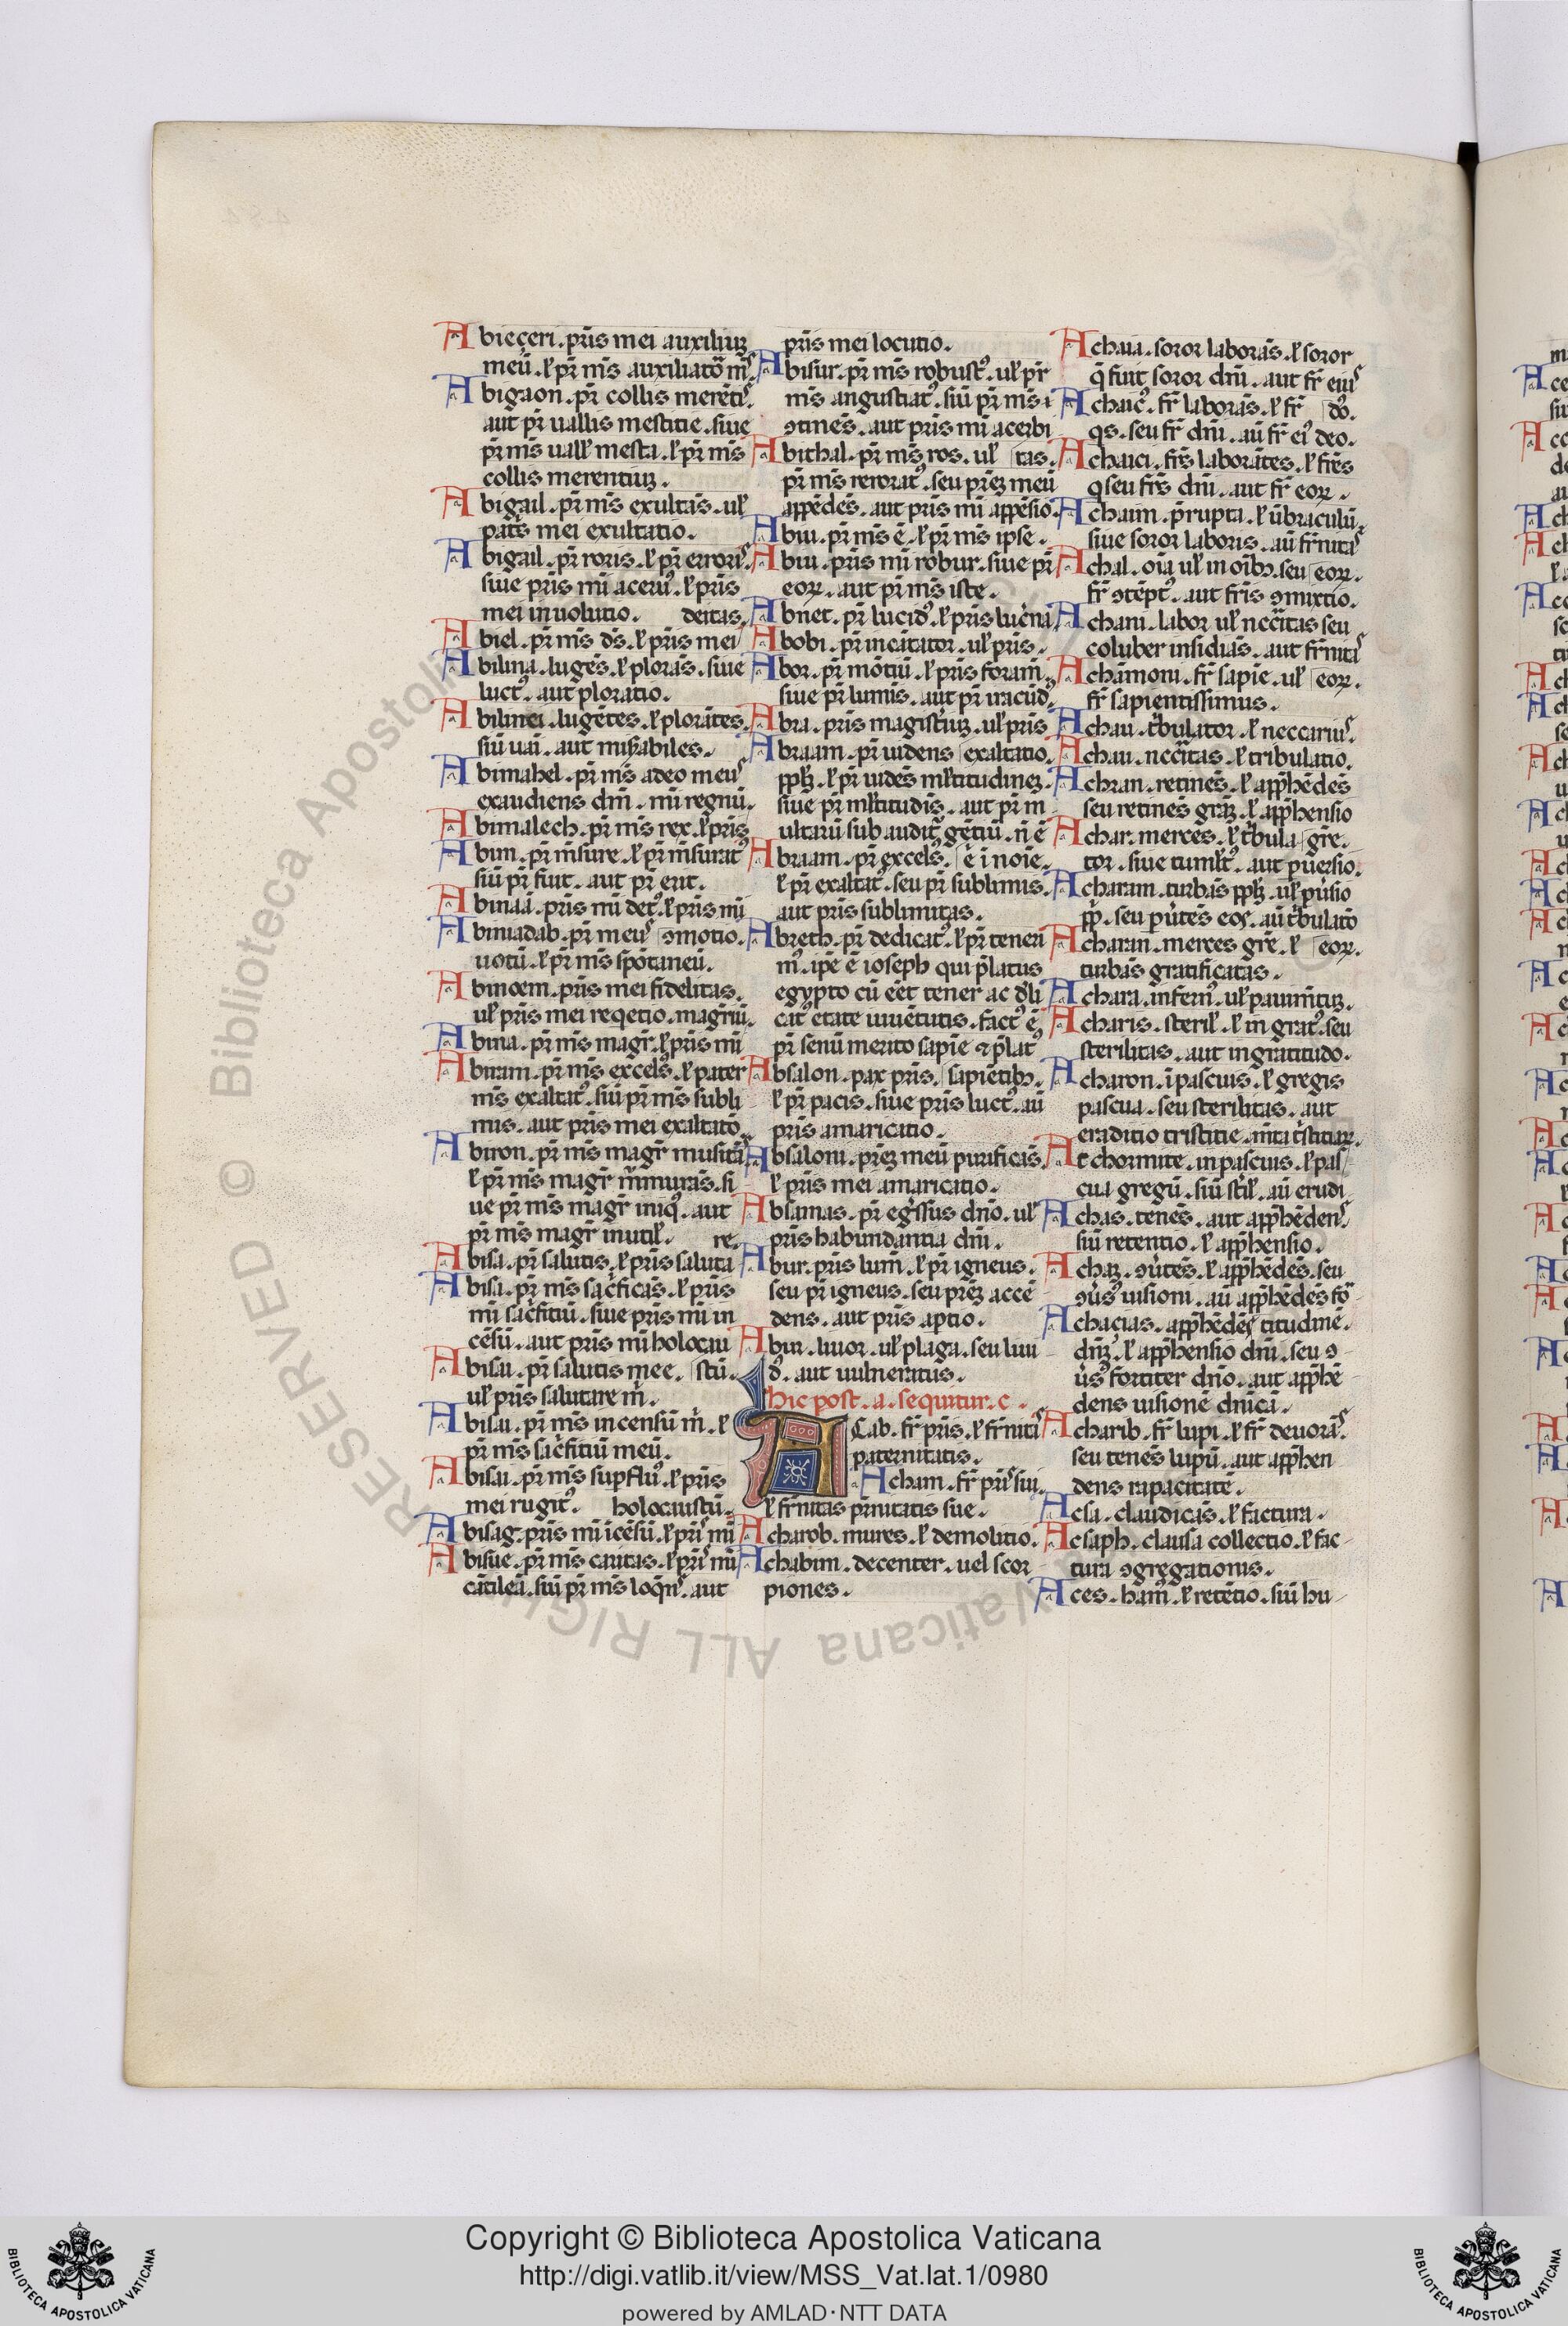 Abieçeri. pr̄is mei auxiliuꝫ
meū. ꝉ pr̄ ms̄ auxiliatō m̄ꝰ.
Abigaon. pr̄ collis merētiꝰ.
aut pr̄ uallis mestitie. siue
pr̄ ms̄ uall' mesta. ꝉ pr̄ ms̄
collis merentiuꝫ.
Abigail. pr̄ ms̄ exultās. ul'
patr̄s mei exultatio.
Abigail. pr̄ roris. ꝉ pr̄ erroriꝰ.
siue pr̄is mi aceruꝰ. ꝉ pr̄is
mei inuolutio. deitas.
Abiel. pr̄ ms̄ ds̄. ꝉ pr̄is mei
Abilina. lugēs. ꝉ plorās. siue
luctꝰ. aut ploratio.
Abilinei. lugētes. ꝉ plorātes.
siū uāi. aut mis̄abiles.
Abimahel. pr̄ ms̄ adeo meuꝰ
exaudiens dm̄. mī regnū.
Abimalech. pr̄ ms̄ rex. ꝉ pr̄is
Abim. pr̄ m̄sure. ꝉ pr̄ m̄suratꝰ
siū pr̄ fuit. aut pr̄ erit.
Abinaā. pr̄is mī detꝰ. ꝉ pr̄is mī
Abiniadab. pr̄ meuꝰ ꝯmotio.
uotū. ꝉ pr̄ ms̄ spōtaneū.
Abinoem. pr̄is mei fidelitas.
ul' pr̄is mei reqetio. magr̄iū.
Abina. pr̄ ms̄ magr̄. ꝉ pr̄is mī
Abiram. pr̄ ms̄ excelsꝰ. ꝉ pater
ms̄ exaltatꝰ. siū pr̄ ms̄ subli
mis. aut pr̄is mei exaltatō.
Abiron. pr̄ ms̄ magr̄ musitā
ꝉ pr̄ ms̄ magr̄ m̄murās. si
ue pr̄ ms̄ magr̄ iniqꝰ. aut
pr̄ ms̄ magr̄ inutil'. re.
Abisa. pr̄ salutis. ꝉ pr̄is saluta
Abisa. pr̄ ms̄ sac̄ficās. ꝉ pr̄is
mī sac̄fitiū. siue pr̄is mī in
cēsū. aut pr̄is mī holocau
Abisai. pr̄ salutis mee. stū.
ul' pr̄is salutare m̄.
Abisai. pr̄ ms̄ incensū m̄. ꝉ
pr̄ ms̄ sac̄fitiū meū.
Abisai. pr̄ ms̄ supfluꝰ. ꝉ pr̄is
mei rugitꝰ. holocaustū.
Abisag. pr̄is mī icēsū. ꝉ pr̄iꝰ mī
Abisue. pr̄ ms̄ caritas. ꝉ pr̄iꝰ mī
cātileā. siū pr̄ ms̄ loqn̄ꝰ. aut
pr̄is mei locutio.
Abisur. pr̄ ms̄ robustꝰ. ul' pr̄
ms̄ angustiatꝰ. siū pr̄ ms̄ i
ꝯtinēs. aut pr̄is mī acerbi
Abithal. pr̄ ms̄ ros. ul' tas.
pr̄ ms̄ reroratꝰ. seu pr̄eꝫ meū
appēdēs. aut pr̄is mī appēsio.
Abiu. pr̄ ms̄ ē. ꝉ pr̄ ms̄ ipse.
Abiu. pr̄is mī robur. siue pr̄
eoꝝ. aut pr̄ ms̄ iste.
Abnet. pr̄ lucidꝰ. ꝉ pr̄is luc̄na
Abobi. pr̄ incātator. ul' pr̄is.
Abor. pr̄ mōtiū. ꝉ pr̄is foram̄.
siue pr̄ lumīs. aut pr̄ iracūdꝰ.
Abra. pr̄is magist̄iuꝫ. ul' pr̄is
Abraam. pr̄ uidens exaltatio.
pplꝫ. ꝉ pr̄ uidēs ml'titudineꝫ.
siue pr̄ ml'titudīs. aut pr̄ m
ultarū sub auditr̄ gētiū. n̄ ē
Abraam. pr̄ excelsꝰ. ē ī noīe.
ꝉ pr̄ exaltatꝰ. seu pr̄ sublimis.
aut pr̄is sublimitas.
Abreth. pr̄ dedicatꝰ. ꝉ pr̄ teneri
mꝰ. ip̄e ē ioseph qui p̄latus
egypto cū eēt tener ac d'li
catꝰ etate iuuētutis. factꝰ ē
pr̄ senū merito sapīe ⁊ p̄latꝰ
Absalon. pax pr̄is. sapiētibꝫ.
ꝉ pr̄ pacis. siue pr̄is luctꝰ. aū
pr̄is amaricatio.
Absaloni. pr̄eꝫ meū purificās.
ꝉ pr̄is mei amaricatio.
Absamas. pr̄ eḡssus dn̄o. ul'
pr̄is habundantia dn̄i.
Abur. pr̄is lum̄. ꝉ pr̄ igneus.
seu pr̄ igneus. seu pr̄eꝫ accē
dens. aut pr̄is aptio.
Abur. liuor. ul' plaga. seu liui
dꝰ. aut uulneratus.
hic post. a. sequitur. c.
ACab. fr̄ pr̄is. ꝉ fr̄nitaꝰ
paternitatis.
Acham. fr̄ pr̄iꝰ sui.
ꝉ fr̄nitas pr̄nitatis sue.
Acharob. mures. ꝉ demolitio.
Achabim. decenter. uel scor
piones.
Achaia. soror laborās. ꝉ soror
q̄ fuit soror dn̄i. aut fr̄ eiuꝰ
Achaicꝰ. fr̄ laborās. ꝉ fr̄ dꝰo.
qs. seu fr̄ dn̄i. aū fr̄ eiꝰ deo.
Achaici. fr̄es laborātes. ꝉ fr̄es
qseu fr̄es dn̄i. aut fr̄ eoꝝ.
Achaim. p̄rupta. ꝉ ūbraculū.
siue soror laboris. aū fr̄nitaꝰ
Achal. oīa ul' in oībꝫ. seu eoꝝ.
fr̄ ꝯtēptꝰ. aut fr̄is ꝯmixtio.
Achani. labor ul' nccītas seu
coluber insidiās. aut fr̄nitaꝰ
Achāmoni. fr̄ sapīe. ul' eoꝝ.
fr̄ sapientissimus.
Achau. t̄bulator. ꝉ neccariuꝰ.
Achau. nccītas. ꝉ tribulatio.
Achran. retinēs. ꝉ app̄hēdēs
seu retinēs gr̄aꝫ. ꝉ app̄hensio
Achar. merces. ꝉ t̄bula gr̄e.
tor. siue tumltꝰ. aut pūersio.
Acharam. turbās pplꝫ. ul' pūsio
pp̄. seu pūtēs eos. aū t̄bulatō
Acharan. merces gr̄e. ꝉ eoꝝ.
turbās gratificatas.
Achara. infernꝰ. ul' pauim̄tuꝫ.
Acharis. steril'. ꝉ in gratꝰ. seu
sterilitas. aut ingratitudo.
Acharon. ī pascuis. ꝉ gregis
pascua. seu sterilitas. aut
eraditio tristitie.
At chormite. in pascuis. ꝉ pas
cua gregū. siū st̄il'. aū erudi
Achas. tenēs. aut app̄hēdenꝰ.
siū retentio. ꝉ app̄hensio.
Achaꝫ. ꝯūtēs. ꝉ app̄hēdēs. seu
ꝯūsꝰ uisioni. aū app̄hēdēs fō
Achacias. app̄hēdēs titudinē.
dn̄ꝫ. ꝉ app̄hensio dn̄i. seu ꝯ
ūsꝰ fortiter dn̄o. aut app̄hē
dens uisionē dn̄icā.
Acharib. fr̄ lupi. ꝉ fr̄ deuorāꝰ.
seu tenēs lupū. aut app̄hen
dens rapacitatē.
Acsa. claudicās. ꝉ factura.
Acsaph. clausa collectio. ꝉ fac
tura ꝯgregationis.
Aces. ham̄. ꝉ retētio. siū hu
Copyright © Biblioteca Apostolica Vaticana
http://digi.vatlib.it/view/MSS_Vat.lat.1/0980
powered by AMLAD·NTT DATA
BIBLIOTECA APOSTOLICA VATICANA
BIBLIOTECA APOSTOLICA VATICANA